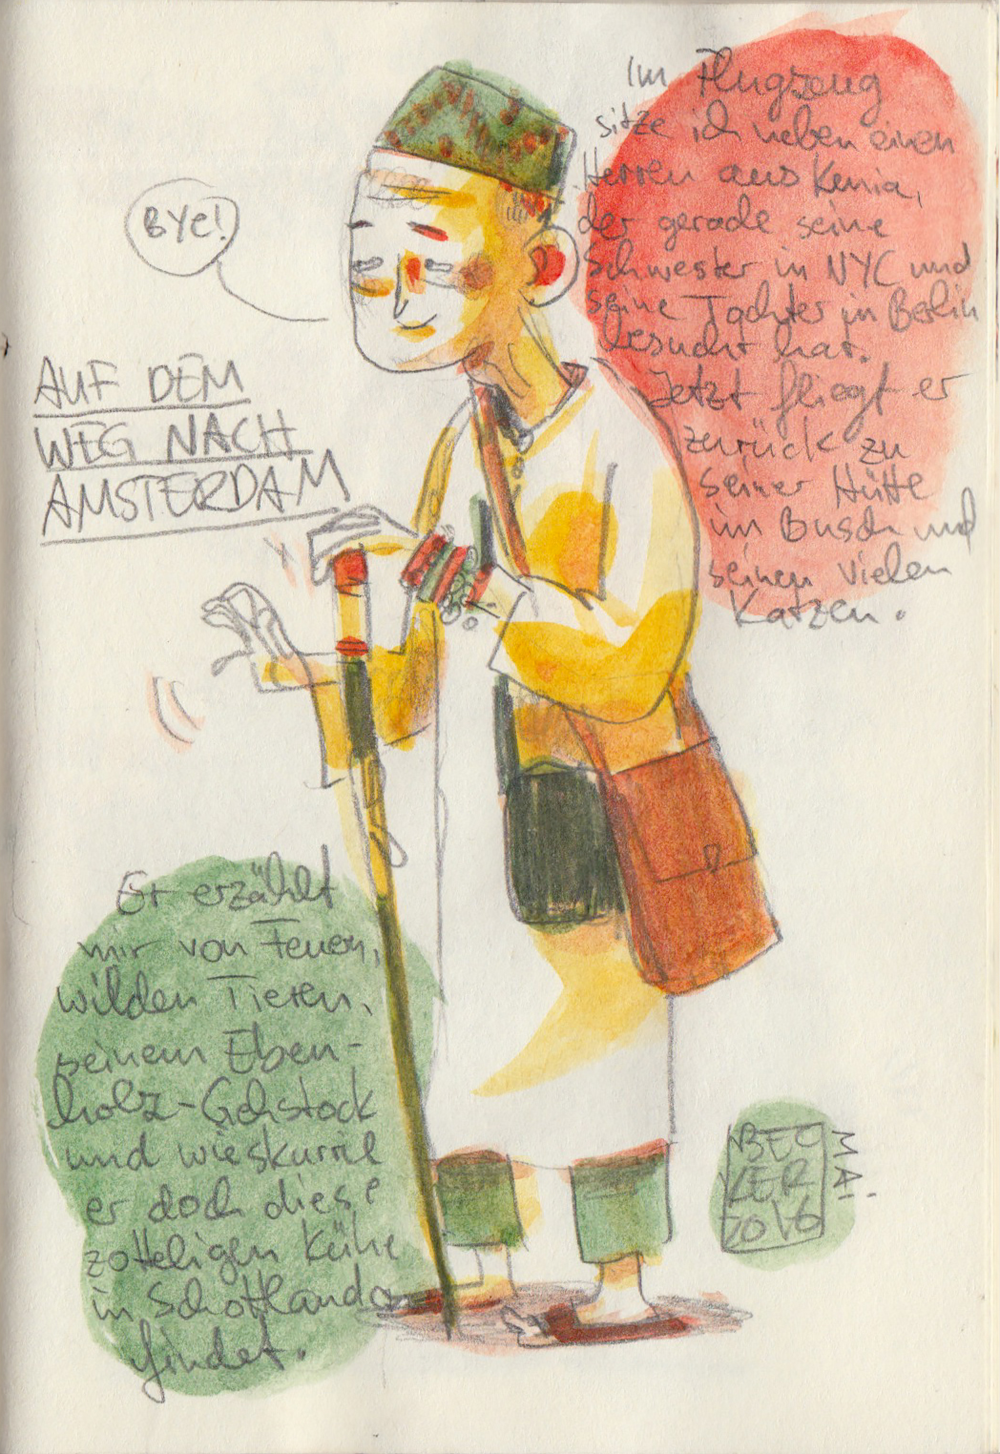 Im Flugzeug
sitze ich neben einen
Herren aus Kenia,
der gerade seine
Schwester in NYC und
seine Tochter in Berlin
besucht hat.
Jetzt fliegt er
zurück zu
seiner Hütte
im Busch und
seinen vielen
Katzen.
BYE!
AUF DEM
WEG NACH
AMSTERDAM
Er erzählt
mir von Feuern,
wilden Tieren,
seinem Eben-
holz-Gehstock
und wie skurril
er doch diese
zotteligen Kühe
in Schottland
findet.
BEC
KER
2016
MAI